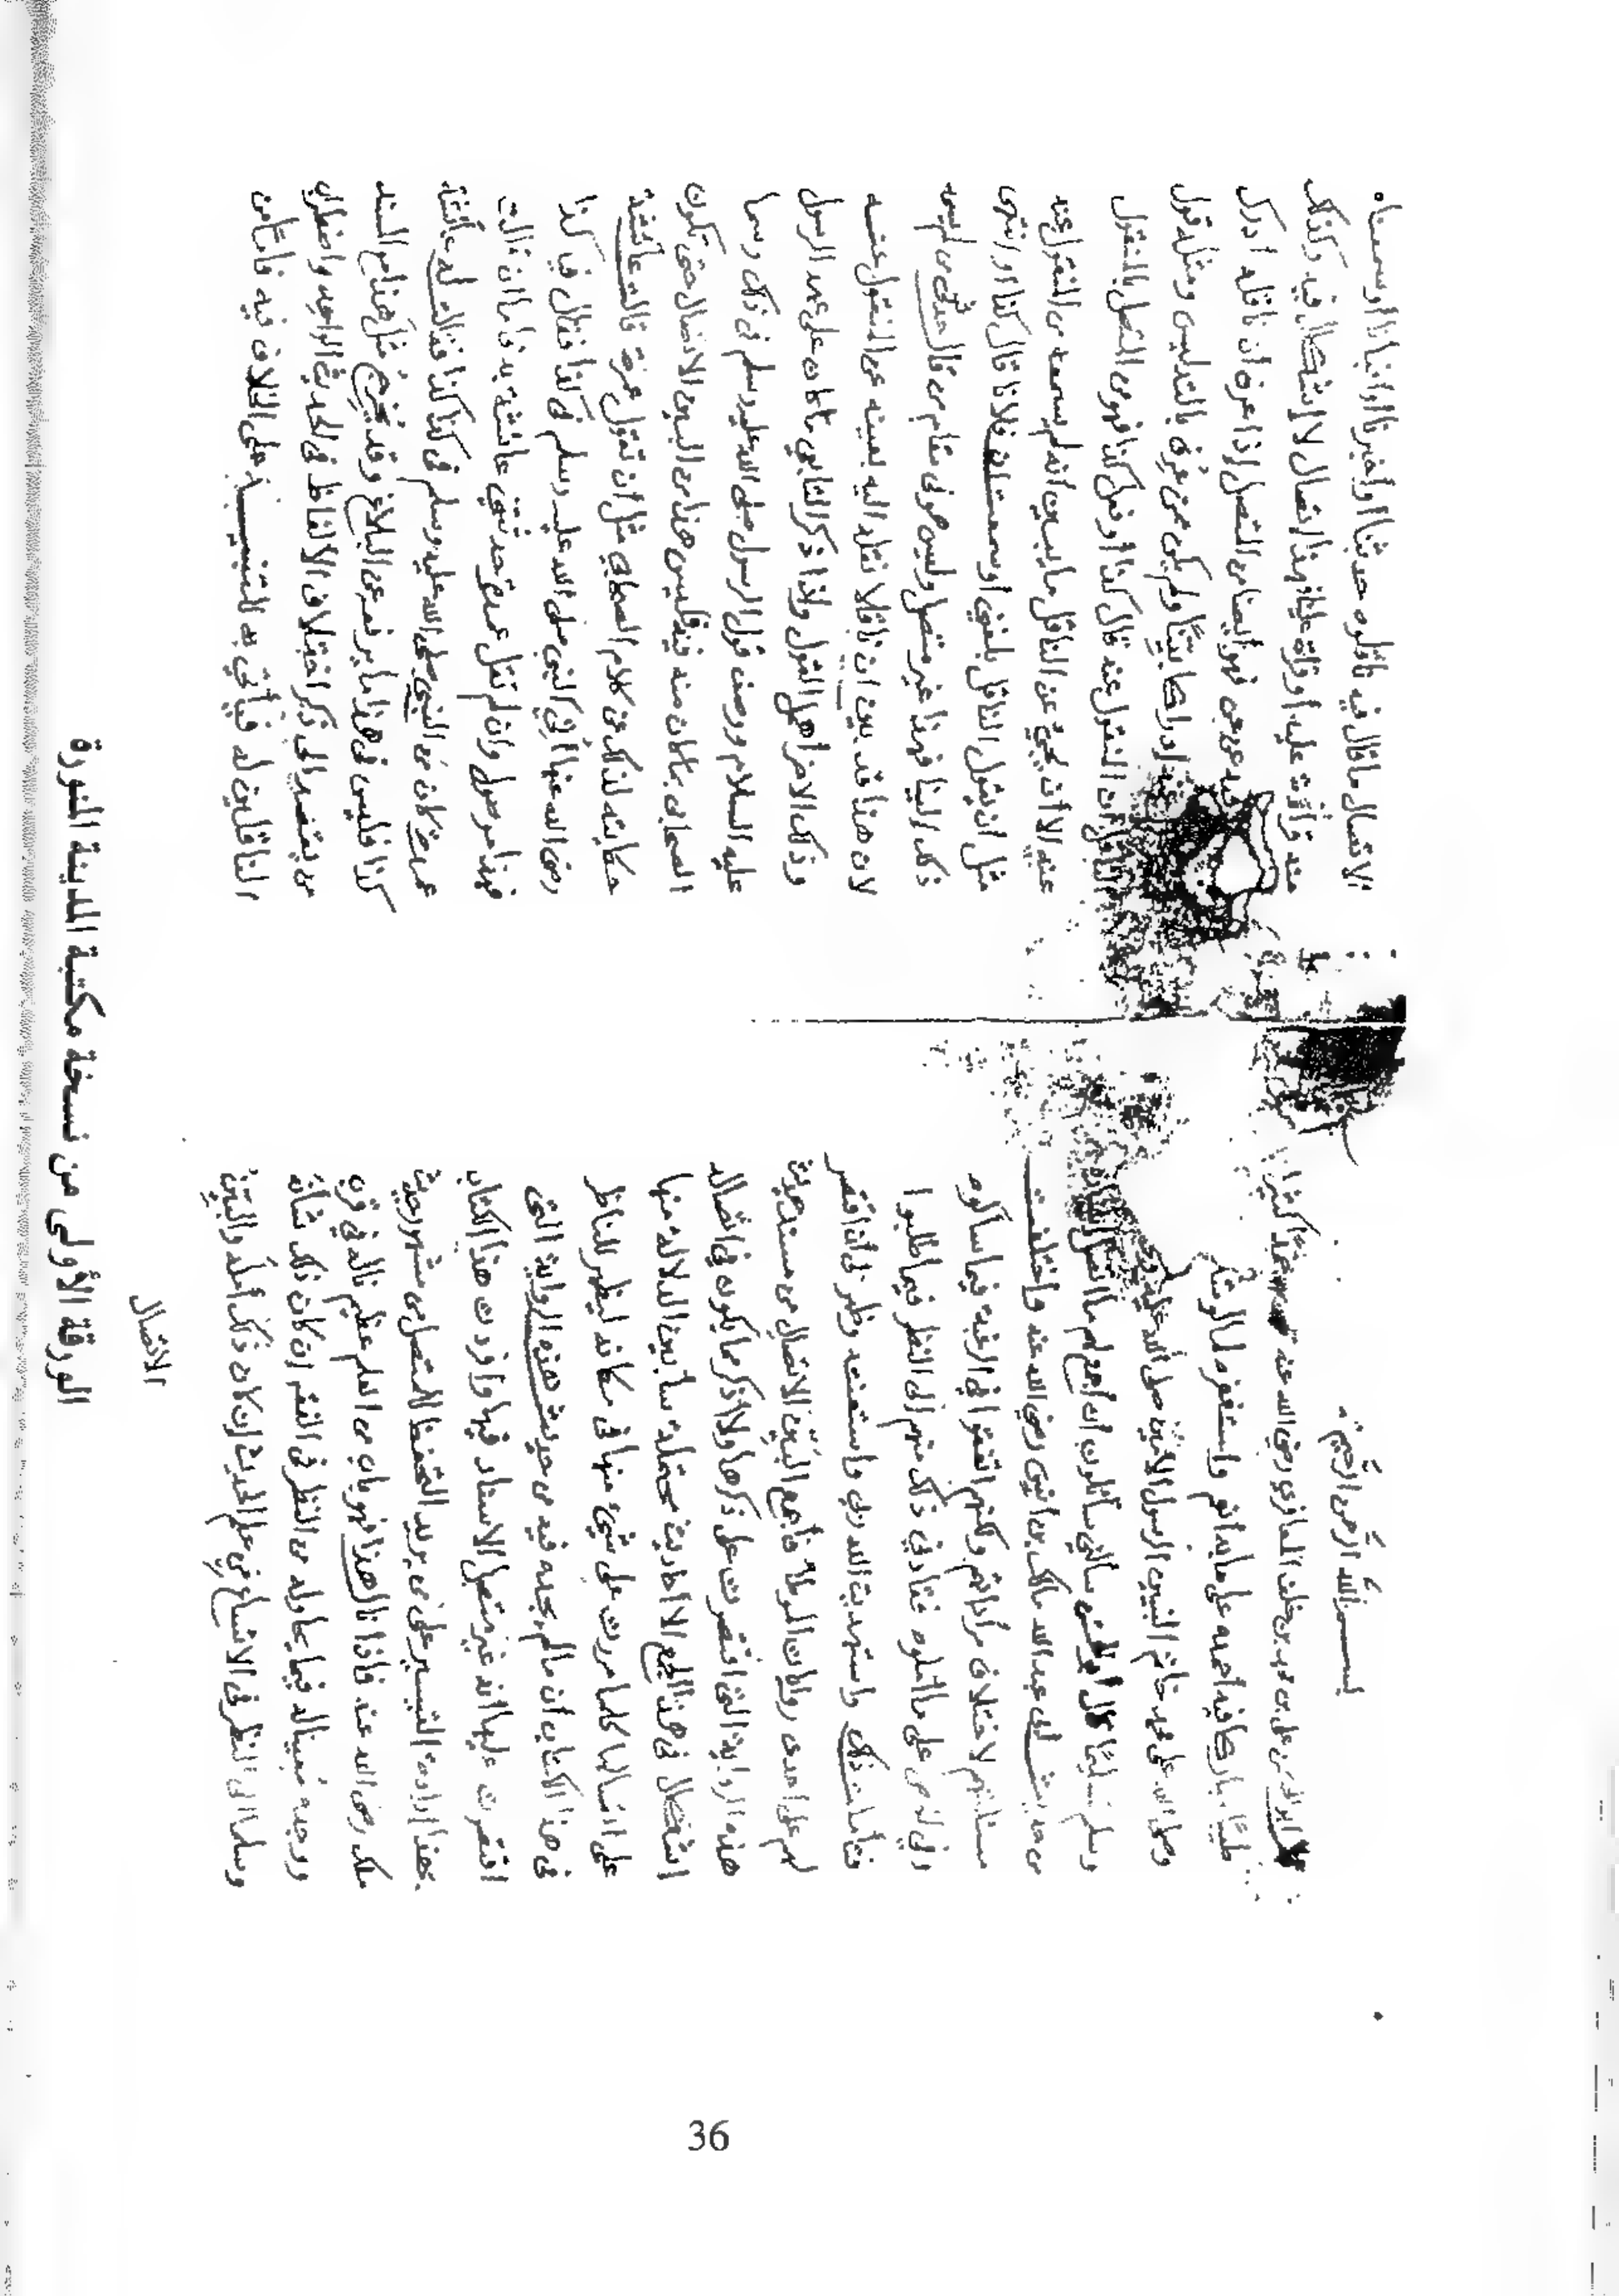 بسم الله الرحمن الرحيم
أبو الحسن علي بن محمد بن خلف المعافري رضي الله عنه الحمد لله حمدا كثيرا
طيبًا مباركا فيه احمده على ما به انعم واستغفره لما الوم
وصلى الله على محمد خاتم النبيين الرسول الأمين صلى الله عليه
وسلم تسليمًا سألني سائلون ان أجمع لهم ما اتصل إسناده
من حديث أبي عبد الله مالك بن انس رضي الله عنه واختلفت
مسئلتهم لاختلاف مراداتهم ولكنهم اتفقوا في الرغبة فيما سألوه
وفي الحرص على ما املوه فقادني ذلك منهم الى النظر فيما طلبوا
فتأملت ذلك واستهديت الله ربي واستعنته وظهر لي أن اقتصر
لهم على احدى روايات الموطا فأجمع البَيِّن الاتصال من مسند حديث
هذه الرواية التي اقتصرت على ذكرها ولا أذكر ما يكون في اتصاله
اشكال في هذا الجمع الا احاديث محتملة سأبين الدلالة منها
على اتصالها كلما مررت على شيء منها في مكانه ليظهر للناظر
في هذا الكتاب أن ما لم يجده فيه من حديث هذه الرواية التي
اقتصرت عليها انه غير متصل الاسناد فيها وافردت هذا الكتاب
بهذا إرادة التيسير على من يريد التحفظ للمتصل من مشهور حديث
ملك رضي الله عنه فاذا نال هذا فهو باب من العلم عظيم ناله في قرب
ووجده مُهيئا له فيما يحاوله من النظر في الفقه إن كان ذلك شأنه
وسلما الى النظر في الاتساع في علم الحديث إن كان ذلك أملُه والبيِّن
الاتصال
الاتصال ما قال فيه ناقلوه حدثنا أو أخبرنا او انبانا أو سمعناه
منه قرأه علينا او قراءة عليه فهذا اتصال لا إشكال فيه وكذلك
عن فهو أيضا من المتصل إذا عرف أن ناقله ادرك
إدراكا بينًا ولم يكن ممن عرف بالتدليس ومثله قول
الناقل ان المنقول عنه قال كذا أو فعل كذا فهو من المتصل بالمنقول
عنه الا أن يجيء عن الناقل ما يبين انه لم يسمعه من المنقول عنه
مثل ان يقول الناقل بلغني او سمعت ان فلانا قال كذا او انتهى
ذلك الينا فهذا غير متصل وليس هو في مقام من قال حدثني من لم يسمه
لان هذا قد بين ان ناقلا نقله اليه بعينه عن المنقول عنه
وذلك الاخر اهمل القول واذا ذكر التابعي ما كان على عهد الرسول
عليه السلام ووصف قول الرسول صلى الله عليه وسلم في ذلك رسما
الصحابي بما كان منه فيه فليس هذا من البين الاتصال حتى تكون
حكايته لذلك عن كلام الصحابي مثل ان تقول عمرة قالت عائشة
رضي الله عنها أتي النبي صلى الله عليه وسلم في كذا فقال في كذا
فهذا موصول وان لم تقل عمرة حدثتني عائشة به فاما ان قالت
عمرة كان من النبي صلى الله عليه وسلم في كذا كذا فقالت له عائشة
كذا فليس في هذا ما يرفعه عن البلاغ وقد يخرج مثل هذا من المسند
من يقصد الى ذكر اختلاف الألفاظ في الحديث الواحد واضطراب
الناقلين له فيأتي به للتنبيه على الخلاف فيه فاما من
الورقة الأولى من نسخة مكتبة المدينة المنورة
36